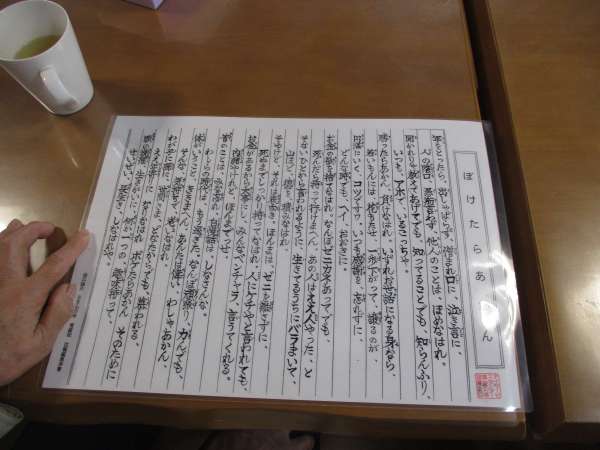 ぼけたらあかん
年をとったら、出しゃばらず、憎まれ口に、泣き言に、
人の陰口、愚痴言わず、他人のことは、ほめなはれ。
聞かれりゃ教えてあげてても、知ってることでも、知らんふり、
いつも、アホで、いるこっちゃ。
勝ったらあかん、負けなはれ、いずれお世話になる身なら、
若いもんには花もたせ、一歩下がって、譲るのが、
円満にいく、コツですわ。いつも感謝を、忘れずに、
どんな時でも、ヘイ、おおきに。
お金の欲を捨てなはれ。なんぼゼニカネあってても、
死んだら持って行けまへん。あの人はええ人やった、と
そないひとから言われるように、生きてるうちにバラまいて、
山ほど、徳を、積みなはれ。
そやけど、それは表向き、ほんまは、ゼニを離さずに、
死ぬまでしっかり持ってなはれ。人にケチやと言われても、
お金があるから大事にし、みんなベンチャラ、言うてくれる。
内緒やけれど、ほんまでっせ。
昔のことは、みな忘れ、自慢話は、しなさんな、
わしらの時代は、もう過ぎた、なんぼ頑張り、力んでも、
体がいうこと、ききまへん。あんたは偉い、わしゃあかん、
そんな気持ちで、おりなはれ。
わが子に孫に、世間さま、どなたからでも、慕われる、
ええ年寄りに、なりなはれ。ボケたらあかん、そのために
せいぜい、長生き、しなはれや。